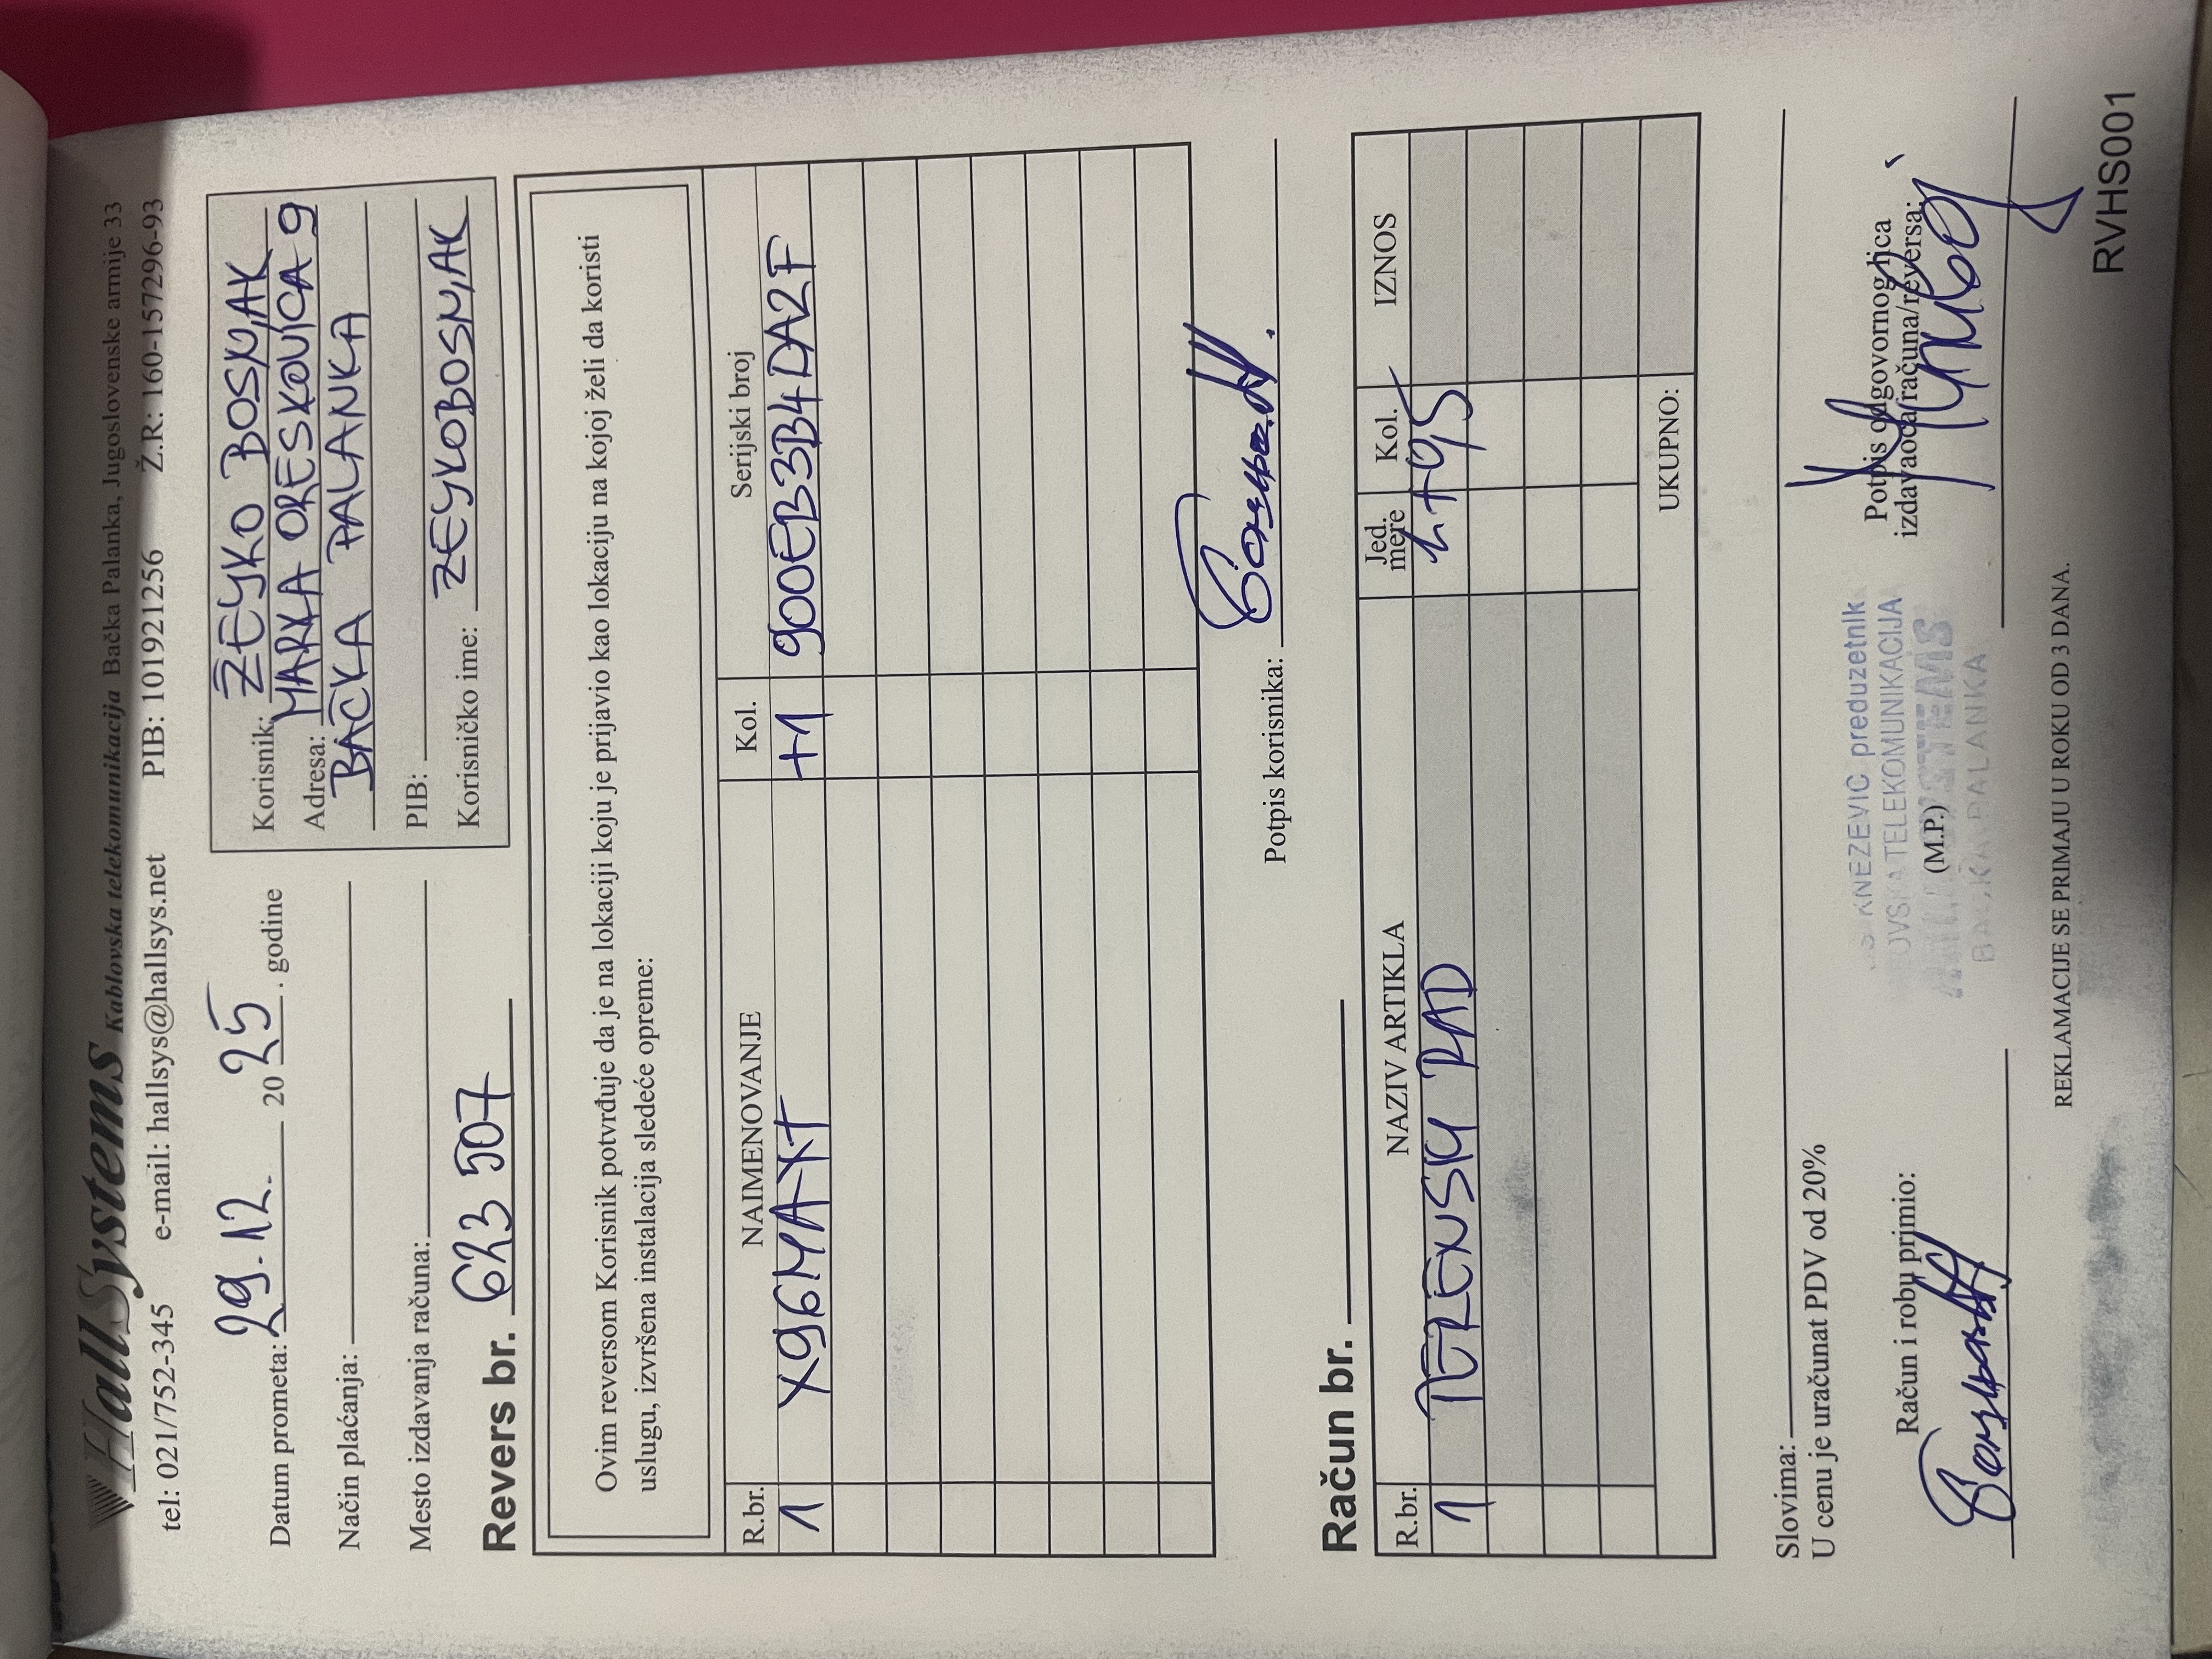 HallSystems Kablovska telekomunikacija Bačka Palanka, Jugoslovenske armije 33
tel: 021/752-345 e-mail: hallsys@hallsys.net PIB: 101921256 Ž.R: 160-157296-93
Datum prometa: 29.12. 2025. godine
Način plaćanja:
Mesto izdavanja računa:
Korisnik: ŽEYKO BOSNJAK
Adresa: MARKA ORESKOVIĆA 9
BAČKA PALANKA
PIB:
Korisničko ime: ZEYKOBOSNJAK
Revers br. 623 507
Ovim reversom Korisnik potvrđuje da je na lokaciji koju je prijavio kao lokaciju na kojoj želi da koristi
uslugu, izvršena instalacija sledeće opreme:
R.br. NAIMENOVANJE Kol. Serijski broj
1 X96MAX+ +1 900EB3B4DA2F
Potpis korisnika:
Račun br.
R.br. NAZIV ARTIKLA Jed. mere Kol. IZNOS
1 TERENSKI RAD
UKUPNO:
Slovima:
U cenu je uračunat PDV od 20%
Račun i robu primio:
KNEZEVIC preduzetnik
TELEKOMUNIKACIJA
(M.P.)
PALANKA
Potpis odgovornog lica
izdavaoca računa/reversa:
REKLAMACIJE SE PRIMAJU U ROKU OD 3 DANA.
RVHS001